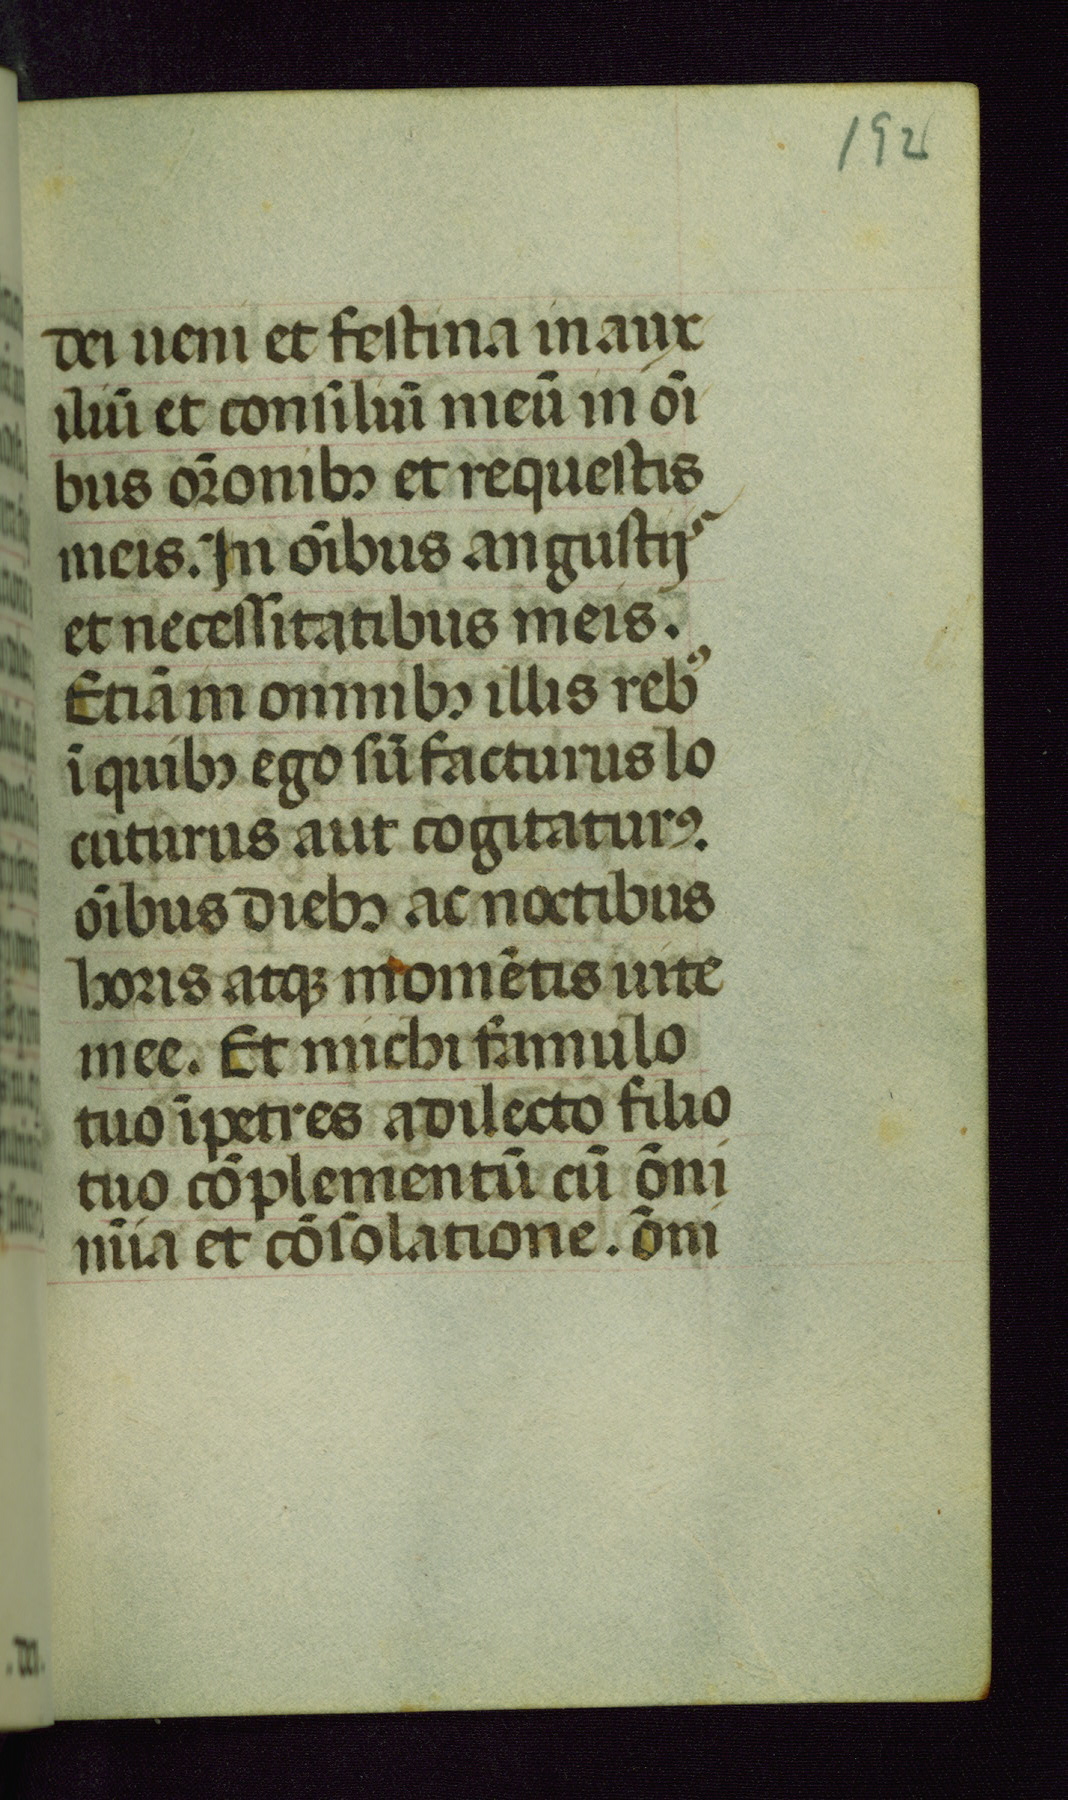 192
dei ueni et festina in aux
iliū et consiliū meū in oī
bus or̄onibꝫ et requestis
meis. In oībus angustijs
et necessitatibus meis.
Etiā in omnibꝫ illis rebꝰ
ī quibꝫ ego sū facturus lo
cuturus aut cogitaturꝰ.
oībus diebꝫ ac noctibus
horis atqꝫ momētis uite
mee. Et michi famulo
tuo īpetres a dilecto filio
tuo cōplementū cū ōni
mīa et cōsolatione. ōni
.dei.